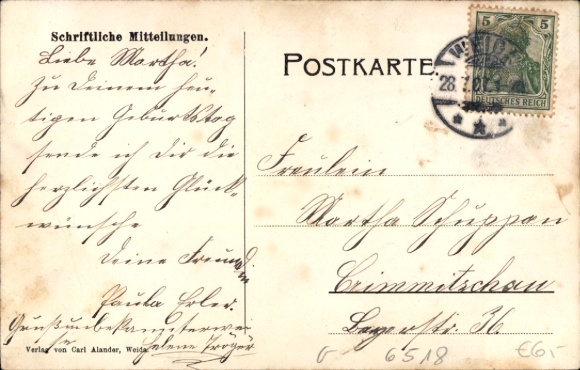 Schriftliche Mitteilungen.
Liebe Martha!
Zu Deinem heu-
tigen Geburtstag
sende ich Dir die
herzlichsten Glück-
wünsche
Deine Freundin
Paula Erler.
Gruß unbekannterwei
se Helene Tröger
Verlag von Carl Alander, Weida.
POSTKARTE.
5 5
DEUTSCHES REICH
WEIDA
28
Fräulein
Martha Schuppan
Crimmitschau
Lagerstr. 36
6518
€6,-